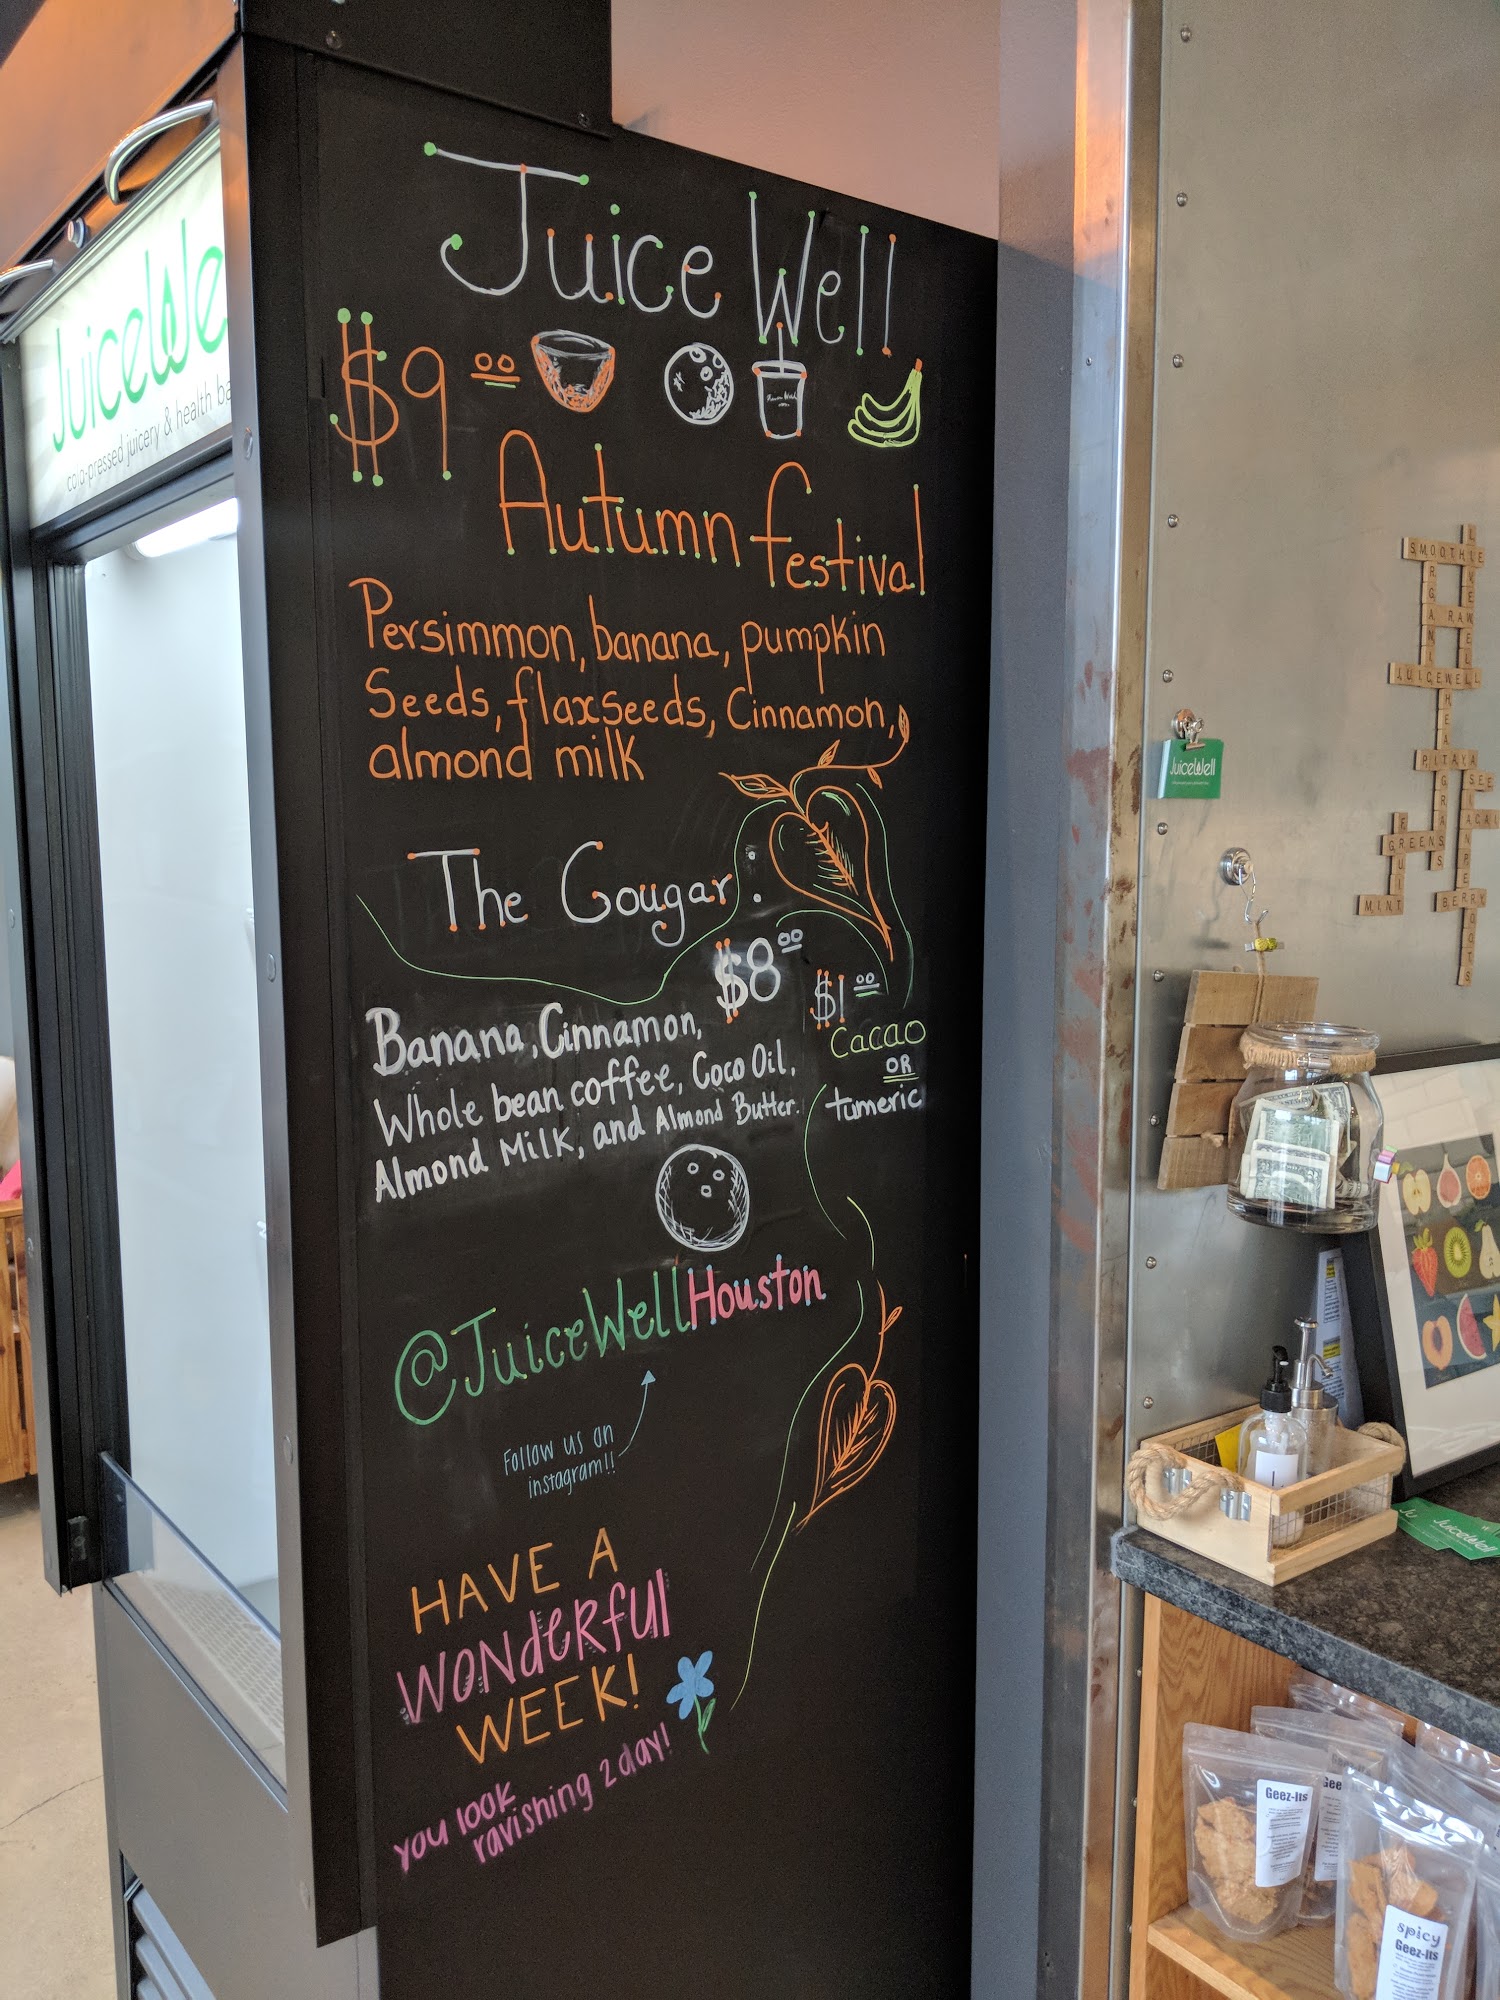 JuiceWe
cold-pressed juicery & health ba
Juice Well
$9.00
Autumn festival
Persimmon, banana, pumpkin
Seeds, flaxseeds, Cinnamon,
almond milk
The Cougar:
$8.00
$1.00
Cacao
OR
tumeric
Banana, Cinnamon,
Whole bean coffee, Coco Oil,
Almond Milk, and Almond Butter.
@JuiceWellHouston
Follow us on
instagram!!
HAVE A
WONdeRful
WEEK!
you look
ravishing 2day!
SMOOTHIE
LIVEWELL
ORGANIC
RAW
JUICEWELL
WHEATGRASS
PITAYA
ACAI
GREENS
FRUIT
MINT
BERRY
JuiceWell
JuiceWell
Geez-Its
Gee
spicy
Geez-Its